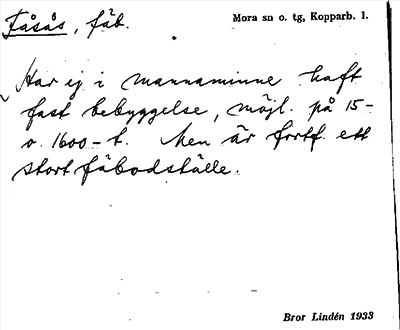 Fåsås, fäb.
Mora sn o. tg, Kopparb. l.
Har ej i mannaminne haft
fast bebyggelse, möjl. på 15-
o. 1600-t. Men är fortf. ett
stort fäbodställe.
Bror Lindén 1933